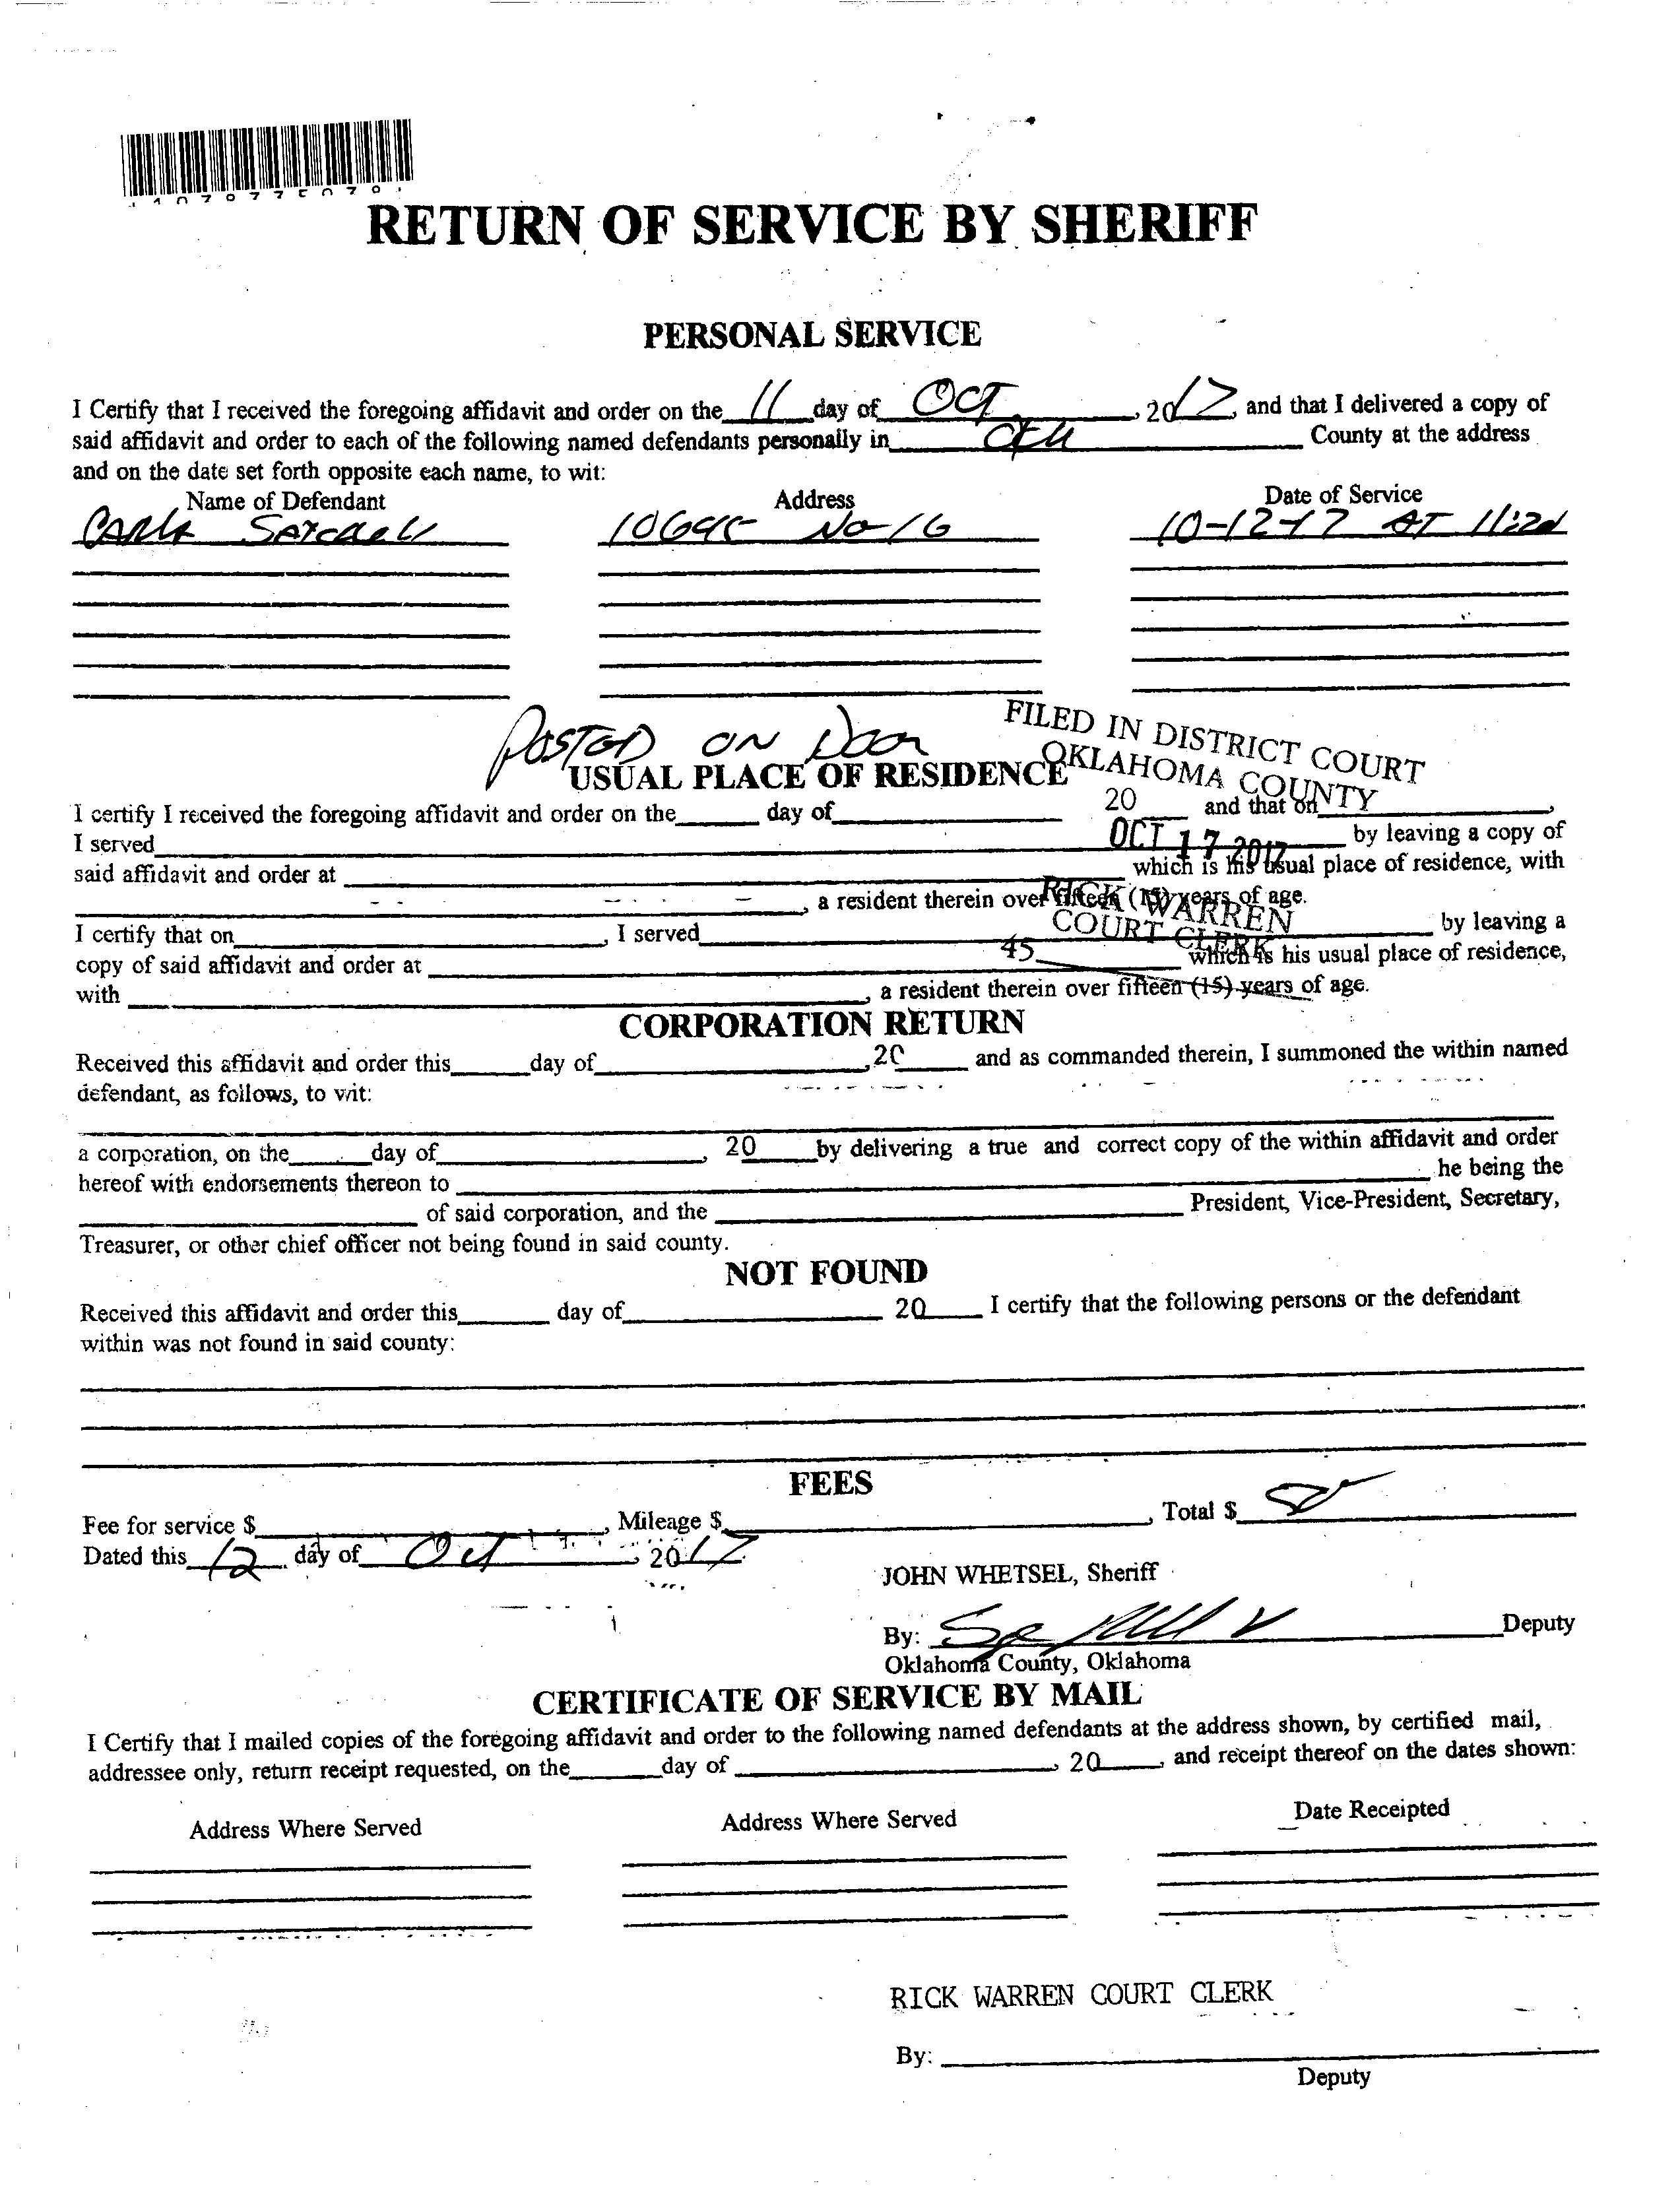 RETURN OF SERVICE BY SHERIFF
PERSONAL SERVICE
I Certify that I received the foregoing affidavit and order on the 11 day of OCT, 2017, and that I delivered a copy of
said affidavit and order to each of the following named defendants personally in County at the address
and on the date set forth opposite each name, to wit:
Name of Defendant Address Date of Service
CARLA No 16 10-12-17 AT
POSTED ON DOOR
FILED IN DISTRICT COURT
OKLAHOMA COUNTY
USUAL PLACE OF RESIDENCE
I certify I received the foregoing affidavit and order on the day of 20 and that on ,
OCT 17 2017
I served by leaving a copy of
said affidavit and order at which is his usual place of residence, with
, a resident therein over fifteen (15) years of age.
RICK WARREN
COURT CLERK
I certify that on , I served by leaving a
45
copy of said affidavit and order at which is his usual place of residence,
with , a resident therein over fifteen (15) years of age.
CORPORATION RETURN
Received this affidavit and order this day of , 20 and as commanded therein, I summoned the within named
defendant, as follows, to wit:
a corporation, on the day of , 20 by delivering a true and correct copy of the within affidavit and order
hereof with endorsements thereon to he being the
of said corporation, and the President, Vice-President, Secretary,
Treasurer, or other chief officer not being found in said county.
NOT FOUND
Received this affidavit and order this day of 20 I certify that the following persons or the defendant
within was not found in said county:
FEES
Fee for service $ , Mileage $ , Total $
Dated this 12 day of Oct , 2017
JOHN WHETSEL, Sheriff
By: Deputy
Oklahoma County, Oklahoma
CERTIFICATE OF SERVICE BY MAIL
I Certify that I mailed copies of the foregoing affidavit and order to the following named defendants at the address shown, by certified mail,
addressee only, return receipt requested, on the day of , 20 , and receipt thereof on the dates shown:
Address Where Served Address Where Served Date Receipted
RICK WARREN COURT CLERK
By:
Deputy